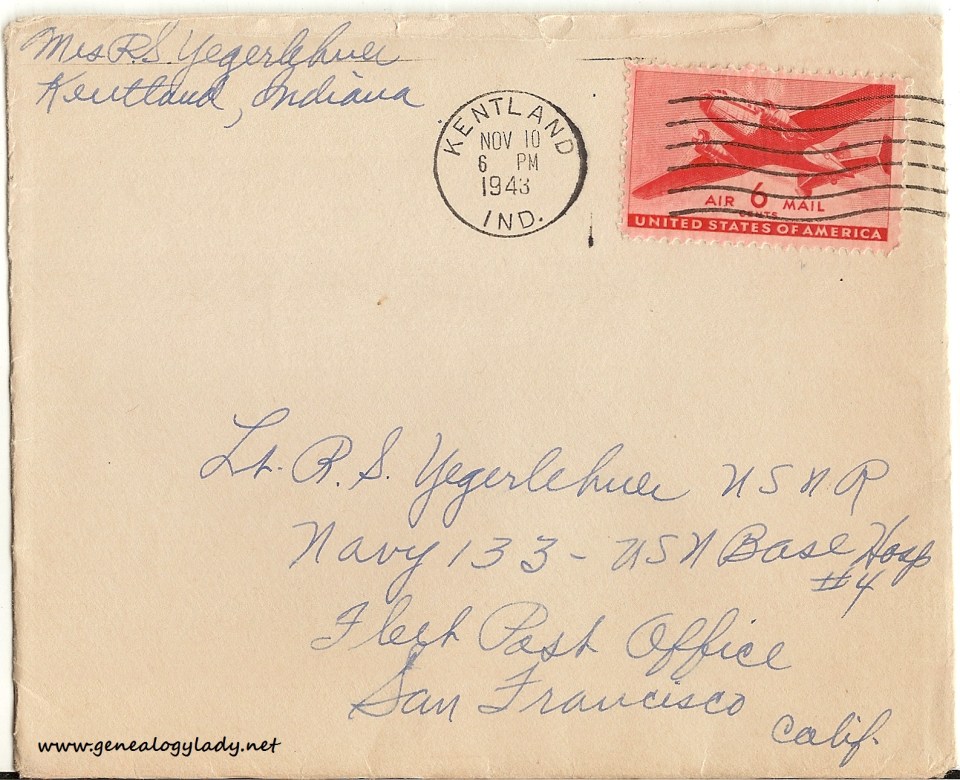 Mrs R.S. Yegerlehner
Kentland, Indiana
KENTLAND
NOV 10
6 PM
1943
IND.
AIR 6 MAIL
CENTS
UNITED STATES OF AMERICA
Lt. R. S. Yegerlehner USNR
Navy 133 - USN Base Hosp
#4
Fleet Post Office
San Francisco
Calif.
www.genealogylady.net